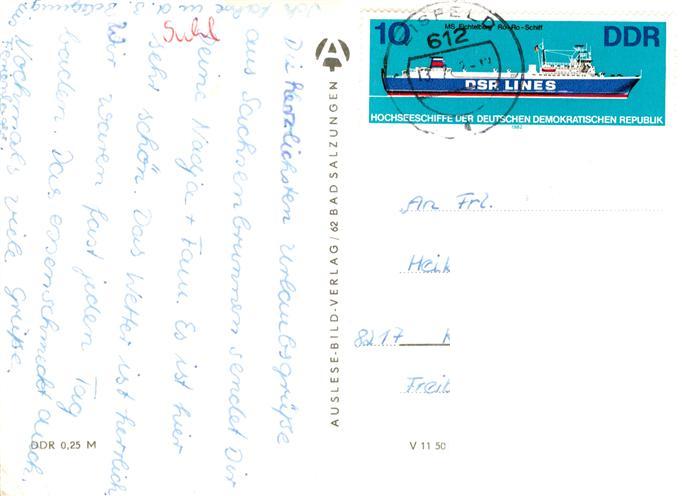 Die herzlichsten Urlaubsgrüße
aus Sachsenbrunnen sendet Dir
Deine Nadja + Fam. Es ist hier
sehr schön. Das Wetter ist herrlich
Wir waren fast jeden Tag
baden. Das essen schmeckt auch.
Nochmals viele Grüße.
Suhl
AUSLESE-BILD-VERLAG / 62 BAD SALZUNGEN
DDR 0,25 M
V 11 50
10
MS Fichtelberg Ro-Ro-Schiff
DDR
DSR LINES
HOCHSEESCHIFFE DER DEUTSCHEN DEMOKRATISCHEN REPUBLIK
1982
ISFELD
612
An Frl.
Heik
8217 K
Freib